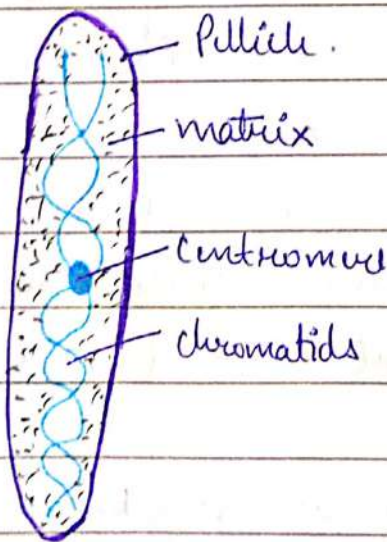 Pellicle.
matrix
Centromere
chromatids